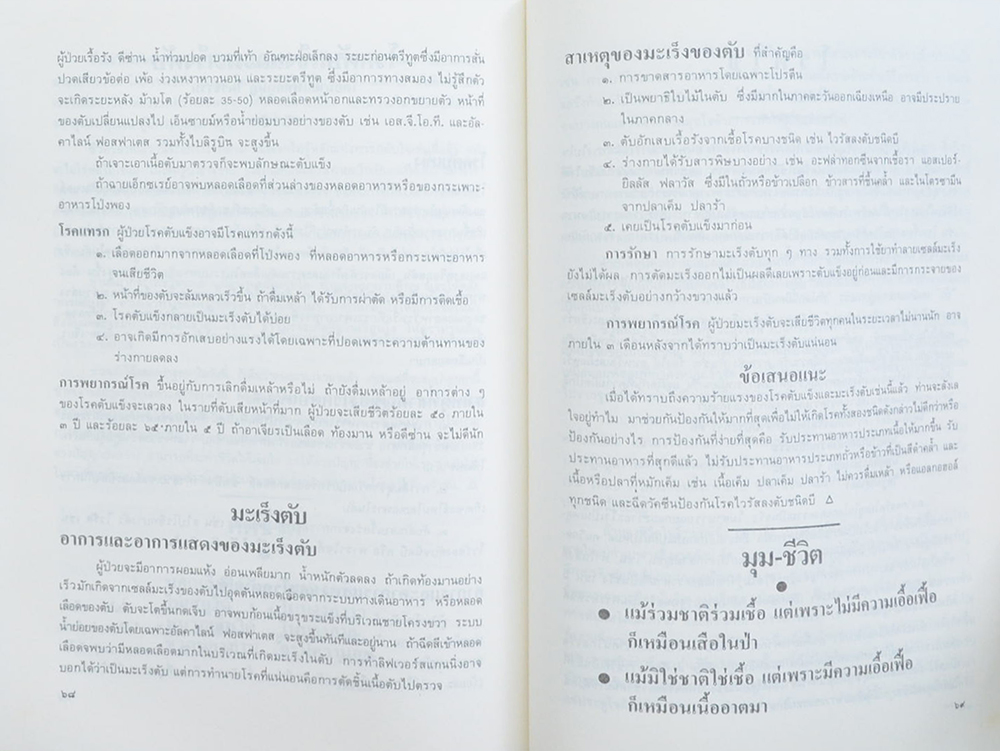 ผู้ป่วยเรื้อรัง ดีซ่าน น้ำท่วมปอด บวมที่เท้า อัณฑะฝ่อเล็กลง ระยะก่อนตรีทูตซึ่งมีอาการสั่น
ปวดเสียวข้อต่อ เพ้อ ง่วงเหงาหาวนอน และระยะตรีทูต ซึ่งมีอาการทางสมอง ไม่รู้สึกตัว
จะเกิดระยะหลัง ม้ามโต (ร้อยละ 35-50) หลอดเลือดหน้าอกและทรวงอกขยายตัว หน้าที่
ของตับเปลี่ยนแปลงไป เอ็นซายม์หรือน้ำย่อมบางอย่างของตับ เช่น เอส.จี.โอ.ที. และอัล-
คาไลน์ ฟอสฟาเตส รวมทั้งไบลิรูบิน จะสูงขึ้น
ถ้าเจาะเอาเนื้อตับมาตรวจก็จะพบลักษณะตับแข็ง
ถ้าฉายเอ็กซเรย์อาจพบหลอดเลือดที่ส่วนล่างของหลอดอาหารหรือของกระเพาะ-
อาหารโป่งพอง
โรคแทรก ผู้ป่วยโรคตับแข็งอาจมีโรคแทรกดังนี้
๑. เลือดออกมากจากหลอดเลือดที่โป่งพอง ที่หลอดอาหารหรือกระเพาะอาหาร
จนเสียชีวิต
๒. หน้าที่ของตับจะล้มเหลวเร็วขึ้น ถ้าดื่มเหล้า ได้รับการผ่าตัด หรือมีการติดเชื้อ
๓. โรคตับแข็งกลายเป็นมะเร็งตับได้บ่อย
๔. อาจเกิดมีการอักเสบอย่างแรงได้โดยเฉพาะที่ปอดเพราะความต้านทานของ
ร่างกายลดลง
การพยากรณ์โรค ขึ้นอยู่กับการเลิกดื่มเหล้าหรือไม่ ถ้ายังดื่มเหล้าอยู่ อาการต่าง ๆ
ของโรคตับแข็งจะเลวลง ในรายที่ตับเสียหน้าที่มาก ผู้ป่วยจะเสียชีวิตร้อยละ ๕๐ ภายใน
๓ ปี และร้อยละ ๖๕ ภายใน ๕ ปี ถ้าอาเจียรเป็นเลือด ท้องมาน หรือดีซ่าน จะไม่ดีนัก
มะเร็งตับ
อาการและอาการแสดงของมะเร็งตับ
ผู้ป่วยจะมีอาการผอมแห้ง อ่อนเพลียมาก น้ำหนักตัวลดลง ถ้าเกิดท้องมานอย่าง
เร็วมักเกิดจากเซลล์มะเร็งของตับไปอุดตันหลอดเลือดจากระบบทางเดินอาหาร หรือหลอด
เลือดของตับ ตับจะโตขึ้นกดเจ็บ อาจพบก้อนเนื้อขรุขระแข็งที่บริเวณชายโครงขวา ระบบ
น้ำย่อยของตับโดยเฉพาะอัลคาไลน์ ฟอสฟาเตส จะสูงขึ้นทันทีและอยู่นาน ถ้าฉีดสีเข้าหลอด
เลือดจะพบว่ามีหลอดเลือดมากในบริเวณที่เกิดมะเร็งในตับ การทำลิฟเวอร์สแกนนิ่งอาจ
บอกได้ว่าเป็นมะเร็งตับ แต่การทำนายโรคที่แน่นอนคือการตัดชิ้นเนื้อตับไปตรวจ
๖๘
สาเหตุของมะเร็งของตับ ที่สำคัญคือ
๑. การขาดสารอาหารโดยเฉพาะโปรตีน
๒. เป็นพยาธิใบไม้ในตับ ซึ่งมีมากในภาคตะวันออกเฉียงเหนือ อาจมีประปราย
ในภาคกลาง
๓. ตับอักเสบเรื้อรังจากเชื้อโรคบางชนิด เช่น ไวรัสลงตับชนิดบี
๔. ร่างกายได้รับสารพิษบางอย่าง เช่น อะฟล่าทอกซีนจากเชื้อรา แอสเปอร์-
ยิลลัส ฟลาวัส ซึ่งมีในถั่วหรือข้าวเปลือก ข้าวสารที่ชื้นคล้ำ และไนโตรซามีน
จากปลาเค็ม ปลาร้า
๕. เคยเป็นโรคตับแข็งมาก่อน
การรักษา การรักษามะเร็งตับทุก ๆ ทาง รวมทั้งการใช้ยาทำลายเซลล์มะเร็ง
ยังไม่ได้ผล การตัดมะเร็งออกไม่เป็นผลดีเลยเพราะตับแข็งอยู่ก่อนและมีการกระจายของ
เซลล์มะเร็งตับอย่างกว้างขวางแล้ว
การพยากรณ์โรค ผู้ป่วยมะเร็งตับจะเสียชีวิตทุกคนในระยะเวลาไม่นานนัก อาจ
ภายใน ๓ เดือนหลังจากได้ทราบว่าเป็นมะเร็งตับแน่นอน
ข้อเสนอแนะ
เมื่อได้ทราบถึงความร้ายแรงของโรคตับแข็งและมะเร็งตับเช่นนี้แล้ว ท่านจะลังเล
ใจอยู่ทำไม มาช่วยกันป้องกันให้มากที่สุดเพื่อไม่ให้เกิดโรคทั้งสองชนิดดังกล่าวไม่ดีกว่าหรือ
ป้องกันอย่างไร การป้องกันที่ง่ายที่สุดคือ รับประทานอาหารประเภทเนื้อให้มากขึ้น รับ
ประทานอาหารที่สุกดีแล้ว ไม่รับประทานอาหารประเภทถั่วหรือข้าวที่เป็นสีดำคล้ำ และ
เนื้อหรือปลาที่หมักเค็ม เช่น เนื้อเค็ม ปลาเค็ม ปลาร้า ไม่ควรดื่มเหล้า หรือแอลกอฮอล์
ทุกชนิด และฉีดวัคซีนป้องกันโรคไวรัสลงตับชนิดบี △
มุม-ชีวิต
● แม้ร่วมชาติร่วมเชื้อ แต่เพราะไม่มีความเอื้อเฟื้อ
ก็เหมือนเสือในป่า
● แม้มิใช่ชาติใช่เชื้อ แต่เพราะมีความเอื้อเฟื้อ
ก็เหมือนเนื้ออาตมา
๖๙